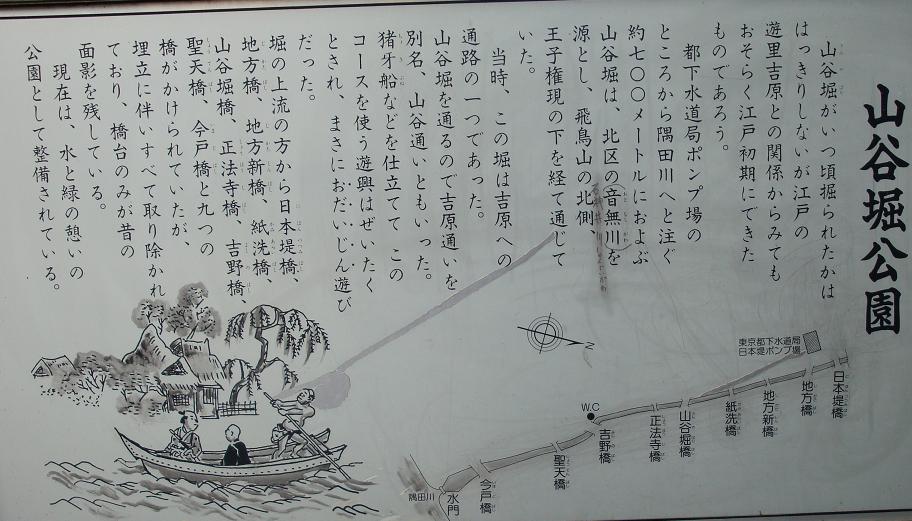 山谷堀公園
山谷堀がいつ頃掘られたかは
はっきりしないが江戸の
遊里吉原との関係からみても
おそらく江戸初期にできた
ものであろう。
都下水道局ポンプ場の
ところから隅田川へと注ぐ
約七〇〇メートルにおよぶ
山谷堀は、北区の音無川を
源とし、飛鳥山の北側、
王子権現の下を経て通じて
いた。
当時、この堀は吉原への
通路の一つであった。
山谷堀を通るので吉原通いを
別名、山谷通いともいった。
猪牙船などを仕立てて この
コースを使う遊興はぜいたく
とされ、まさにおだいじん遊び
だった。
堀の上流の方から日本堤橋、
地方橋、地方新橋、紙洗橋、
山谷堀橋、正法寺橋、吉野橋、
聖天橋、今戸橋と九つの
橋がかけられていたが、
埋立に伴いすべて取り除かれ
ており、橋台のみが昔の
面影を残している。
現在は、水と緑の憩いの
公園として整備されている。
東京都下水道局
日本堤ポンプ場
日本堤橋
地方橋
地方新橋
紙洗橋
山谷堀橋
正法寺橋
W.C
吉野橋
聖天橋
今戸橋
水門
隅田川
N